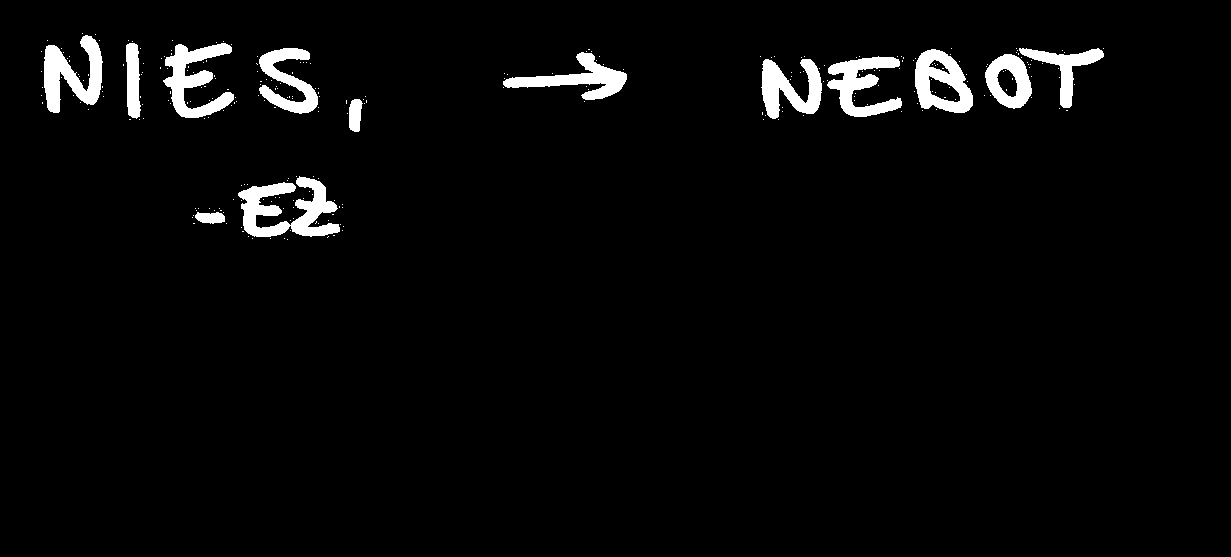 NIES, → NEBOT
-EZ